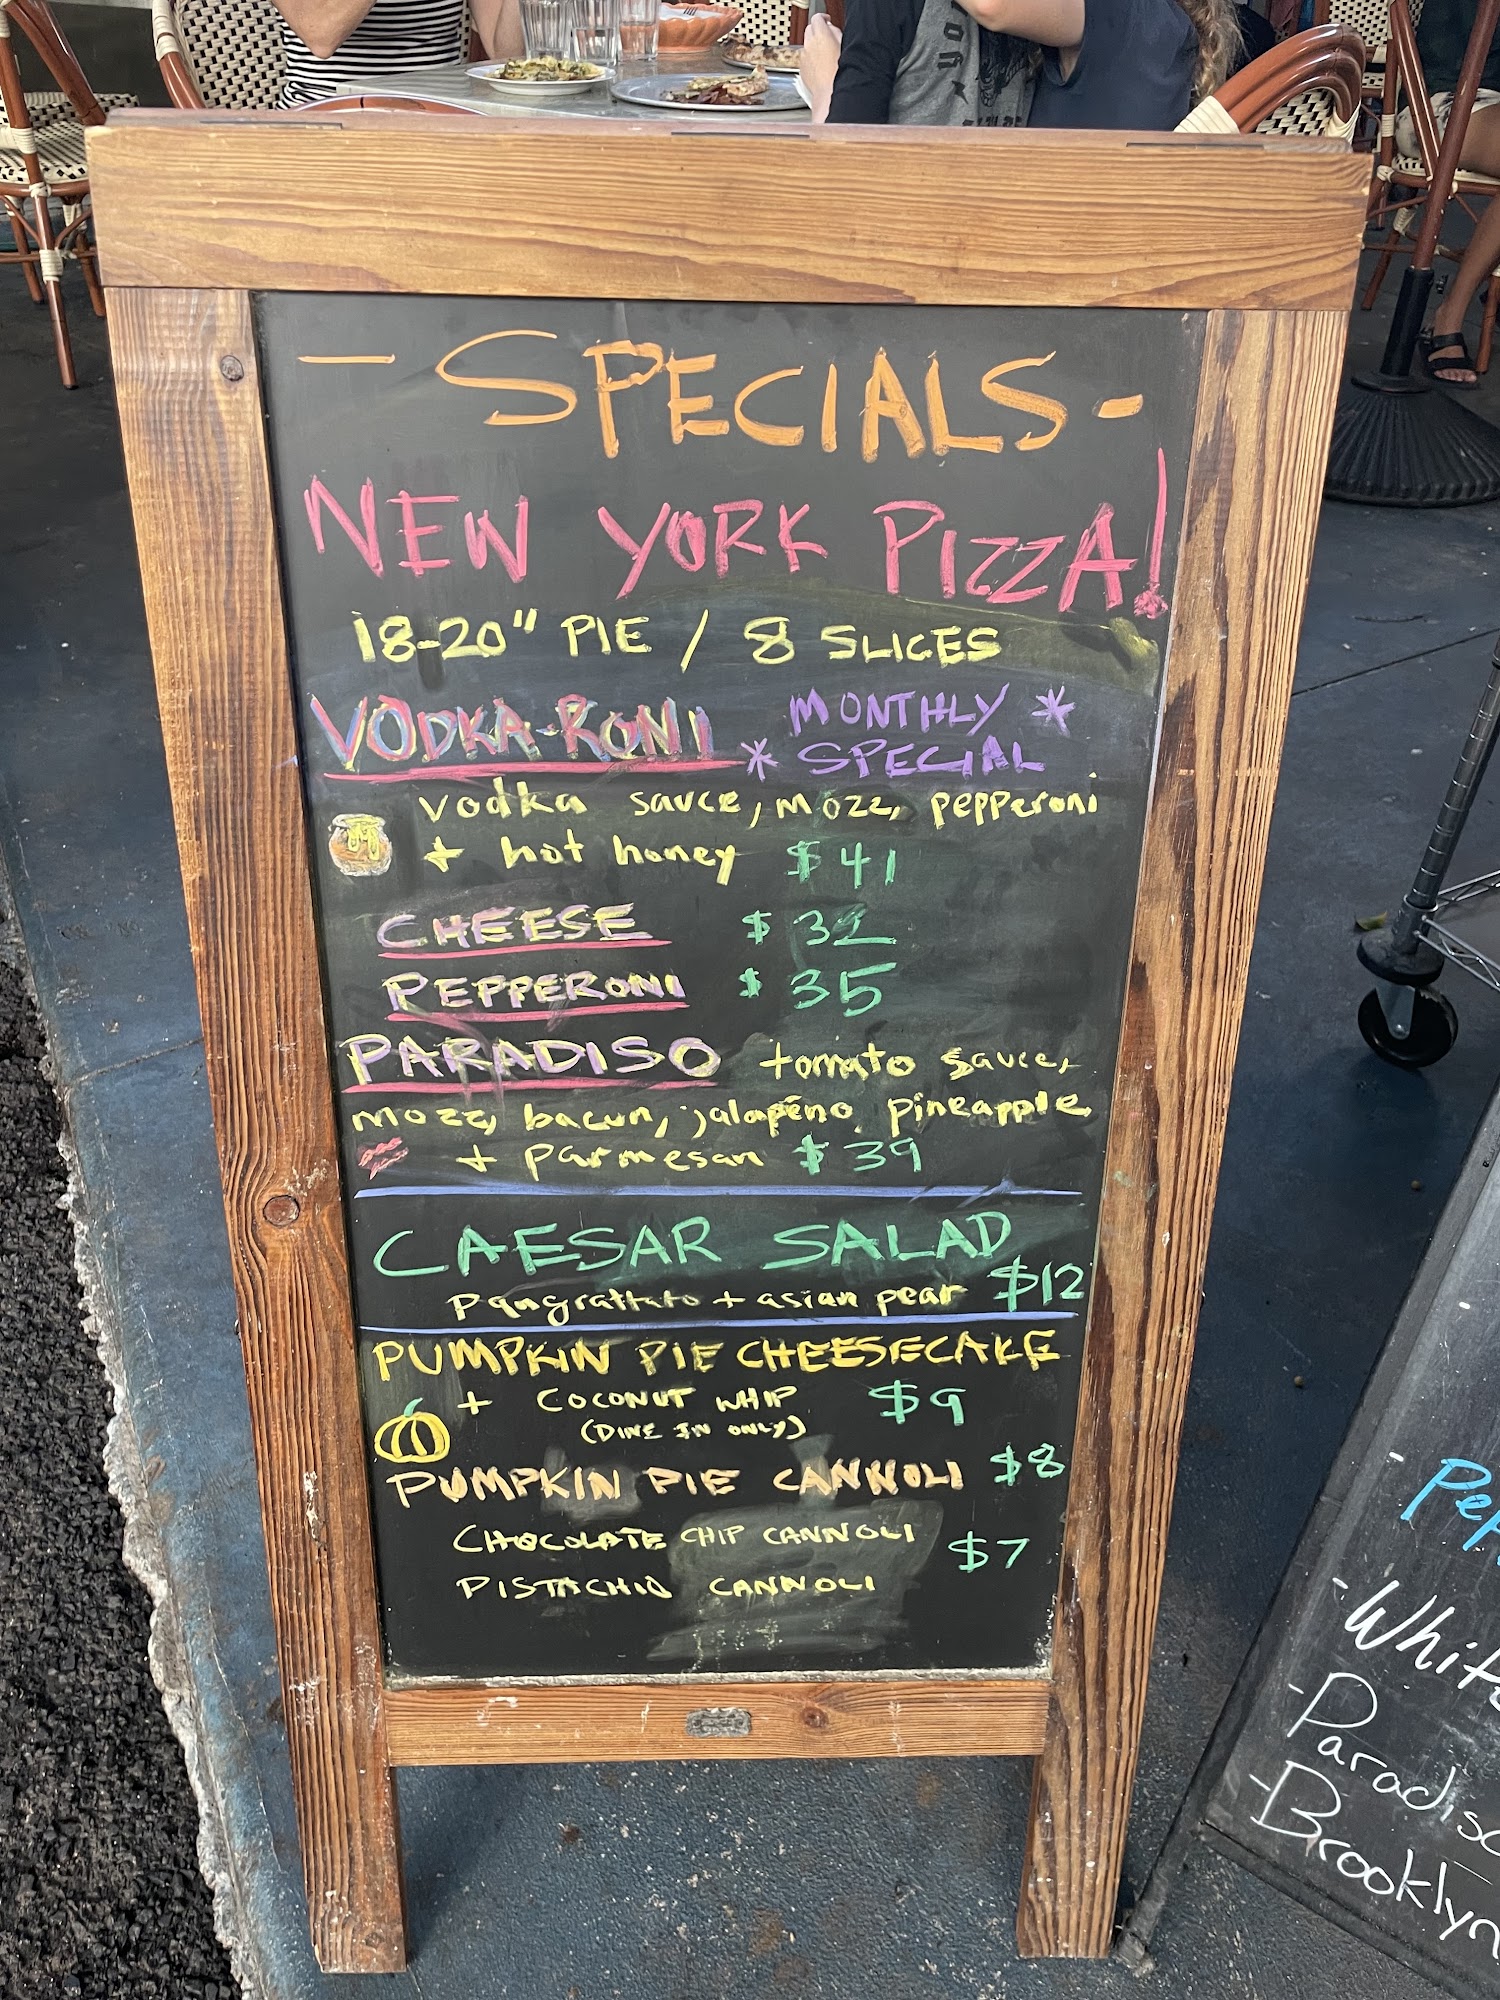 - SPECIALS -
NEW YORK PIZZA!
18-20" PIE / 8 SLICES
VODKA-RONI MONTHLY *
* SPECIAL
vodka sauce, mozz, pepperoni
+ hot honey $41
CHEESE $ 32
PEPPERONI $ 35
PARADISO tomato sauce,
mozz, bacon, jalapéno, pineapple,
+ parmesan $39
CAESAR SALAD
pangrattato + asian pear $12
PUMPKIN PIE CHEESECAKE
+ COCONUT WHIP $9
(DINE IN ONLY)
PUMPKIN PIE CANNOLI $8
CHOCOLATE CHIP CANNOLI $7
PISTACHIO CANNOLI
- Brooklyn